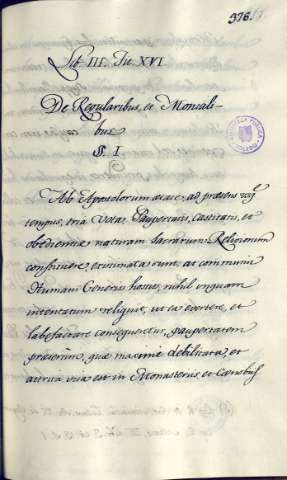 376.
Lib. III. Tit. XVI
De Regularibus, et Moniali-
bus
§. I
Ab Apostolorum aetate ad praesens usq̃
tempus, tria Vota Paupertatis, castitatis, et
obedientiae naturam sacrarum Religionum
constituere, existimata sunt: at communis
Humani Generis hostis, nihil unquam
intentatum reliquit, ut ea evertere, et
labefactare consequeretur, paupertatem
praesertim, quae maxime debilitata, et
attrita visa est in Monasteriis, et Coenobiis